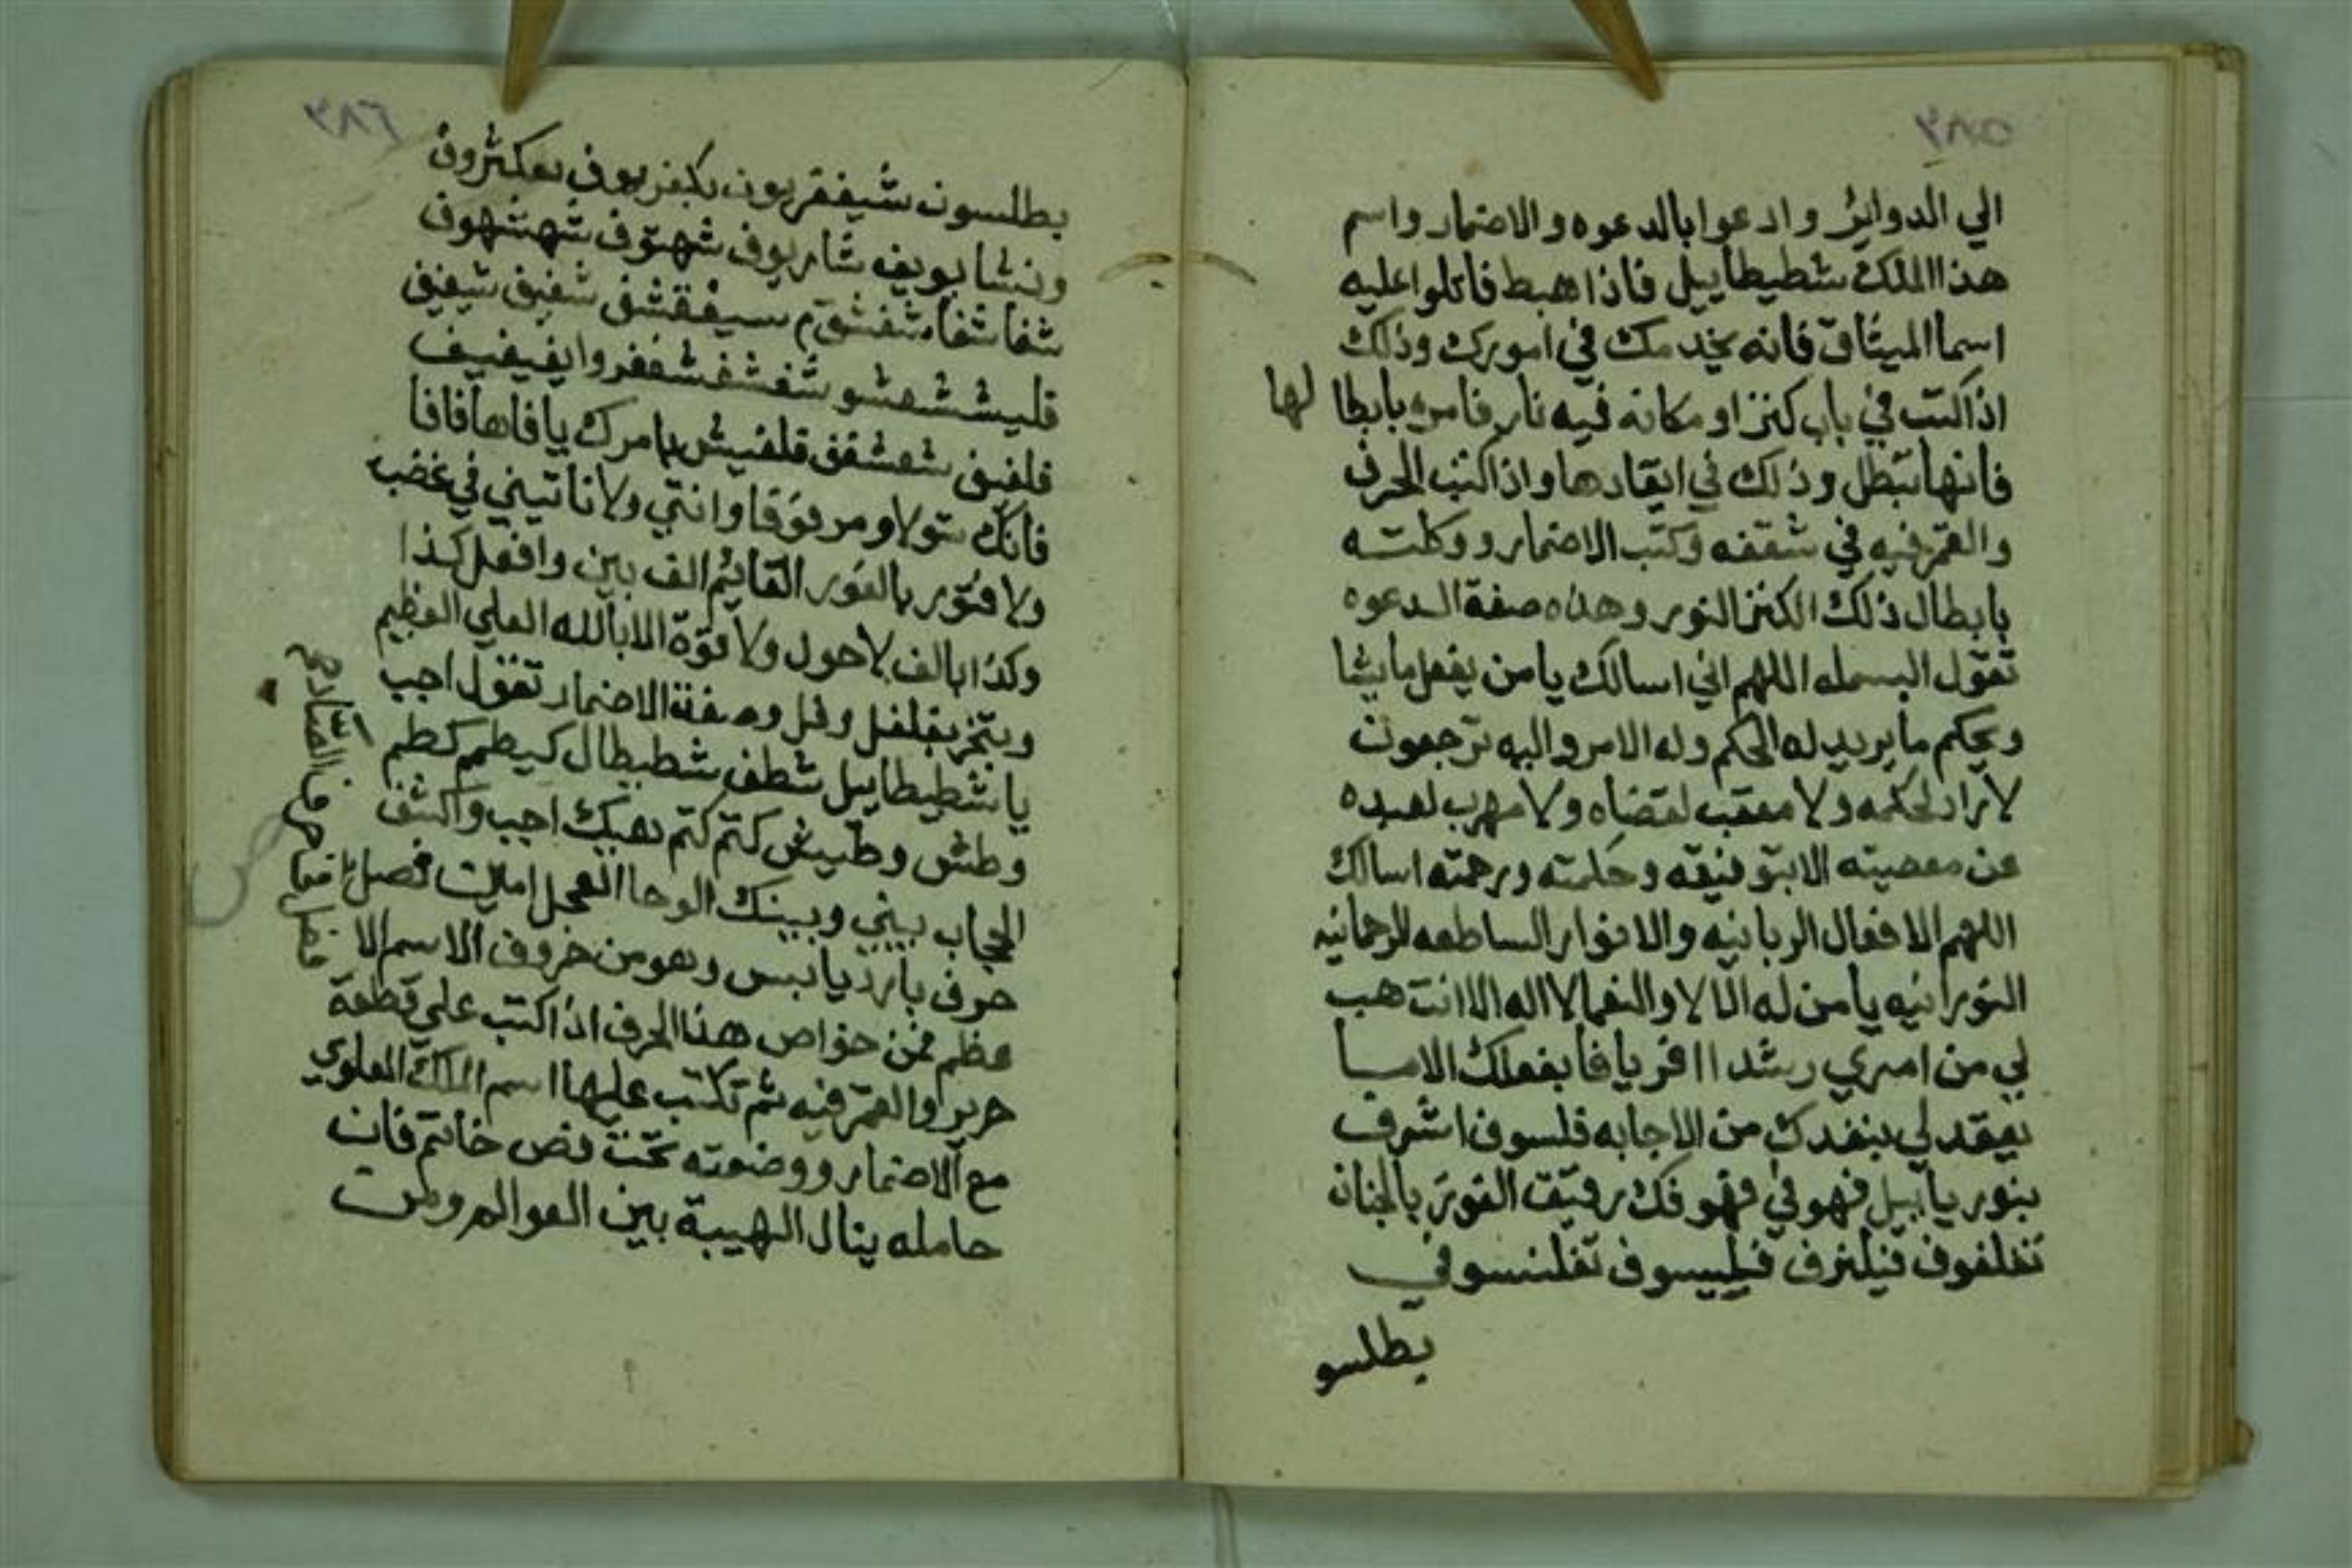 الي الدوائر وادعوا بالدعوه والاضمار واسم
هذا الملك شطيطاييل فاذا هبط فاتلوا عليه
اسما الميثاق فانه يخدمك في امورك وذلك
اذا كنت في باب كنز او مكانه فيه نار فامره بابطا لها
فانها تبطل وذلك في ايقادها واذا كتب الحرف
والقمر فيه في شقفه وكتب الاضمار ووكلته
بابطال ذلك الكنز النور وهذه صفة الدعوه
تقول البسمله اللهم اني اسالك يا من يفعل ما يشا
ويحكم ما يريد له الحكم وله الامر واليه ترجعون
لا راد لحكمه ولا معقب لقضاه ولا مهرب لعبده
عن معصيته الا بتوفيقه وحكمته ورحمته اسالك
اللهم الافعال الربانيه والانوار الساطعه الرحمانيه
النورانيه يا من له الالا والنعما لا اله الا انت هب
لي من امري رشدا افر يا فا بفعلك الاميا
يعقد لي بنفدك من الاجابه فلسوف اشرف
بنور ياييل فهو في فهو فك رقيق الفوز بالجنان
تفلفوف فيلنرف فيلييسوف تفلنسوفي
يطلسو
بطلسون شيففريون بكيفريوف بعكشرون
ونشا بويف شاريوف شهتوف شهشهوف
شفا شفا شفشقم سيفقشف شفيف شيفيف
قليششعشو شفشفشففروا يفيفييف
فلفيف شعشفف قلفيش بامرك يا فاها فافا
فانك تتولا ومرفوقا وانتي ولا تاتيني في غضب
ولا فتور بالفور القايم الف بين وافعل كذا
وكذا بالف لا حول ولا قوة الا بالله العلي العظيم
وبتخر بفلفل وفل وصفة الاضمار تقول اجب
يا شطيطاييل شطف شطيطال كيطم كطم
وطش وطييش كتم كتم بعبك اجب واكشف
الحجاب بيني وبينك الوحا العجل امليت فصل
حرف بارد يابس وهو من حروف الاسم الا
عظم فمن خواص هذا الحرف اذا كتب علي قطعة
حرير والقمر فيه ثم تكتب عليها اسم الملك العلوي
مع الاضمار ووضعته تحت فص خاتم فان
حامله ينال الهيبة بين العوالم ومن